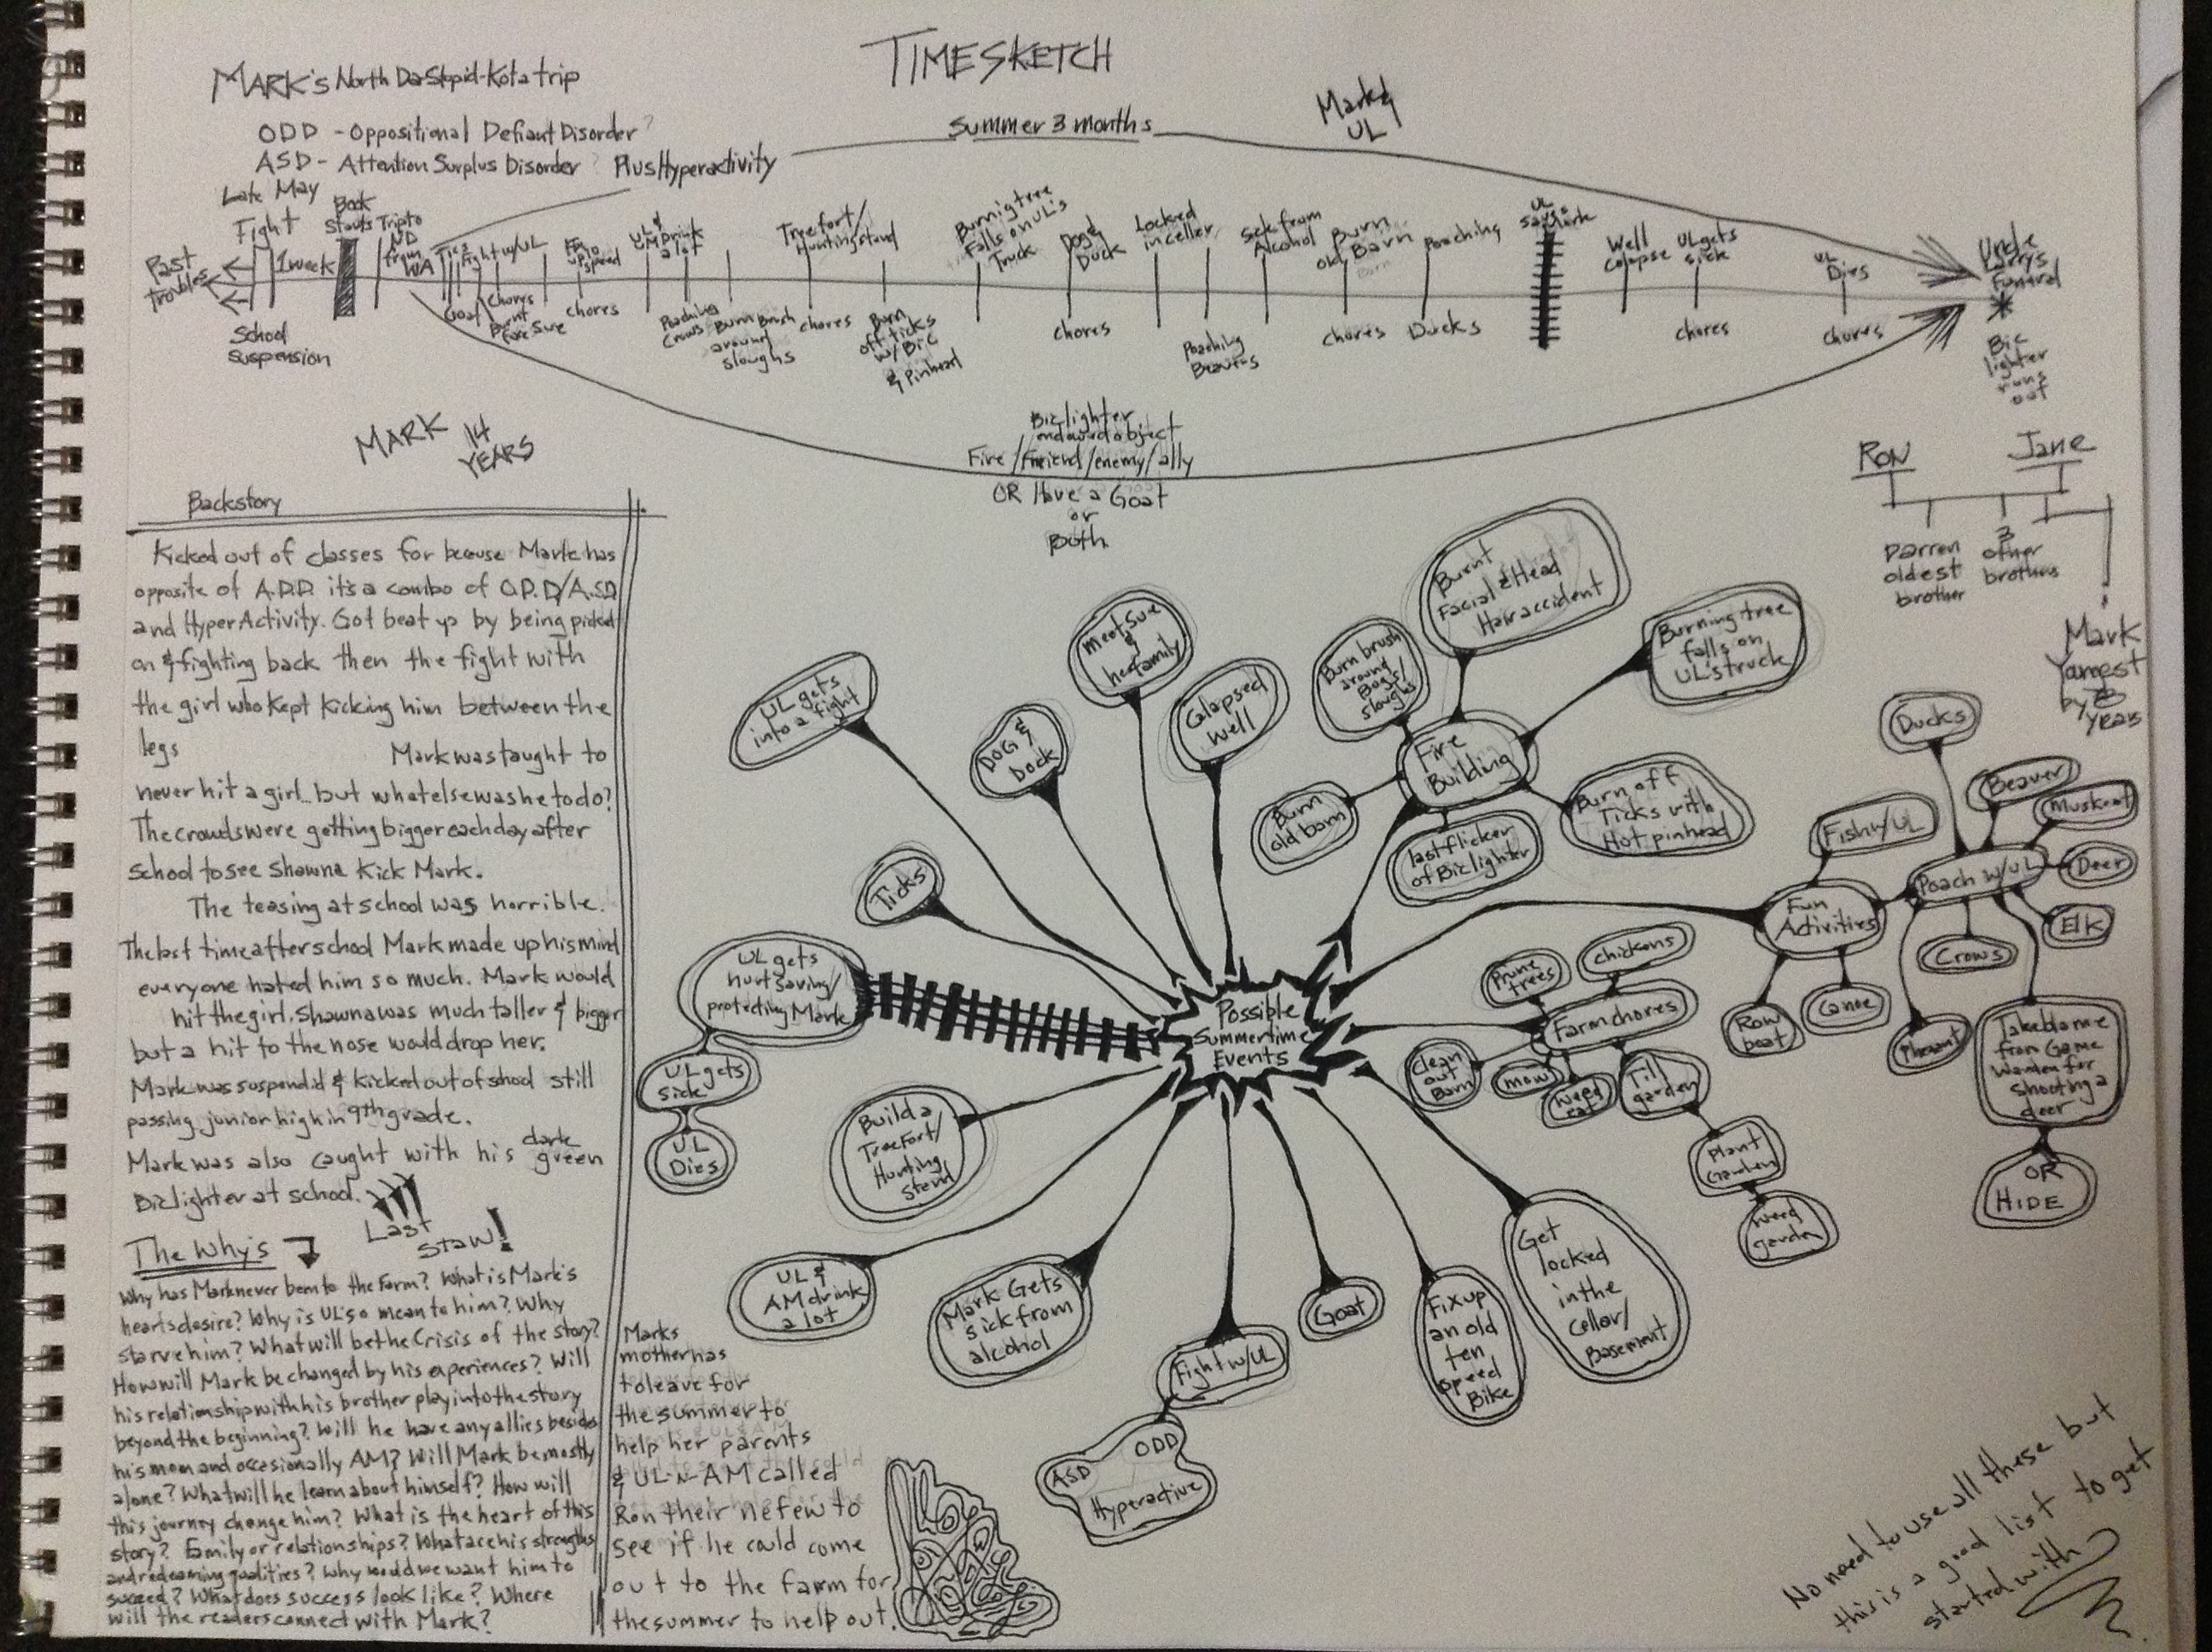 TIMESKETCH
MARK's North Da-Stupid-Kota trip
ODD - Oppositional Defiant Disorder?
ASD - Attention Surplus Disorder? Plus Hyperactivity
Summer 3 months
Mark &
UL
Late May
Fight
1 week
Book
Starts
Trip to
ND
from
WA
Tics
Fight w/UL
up to
speed
UL &
AM Drink
a lot
Tree fort/
Hunting stand
Burnig tree
Falls on UL's
Truck
Dog &
Duck
Locked
in celler
Sick from
Alcohol
Burn
old Barn
Poaching
UL
saves
Mark
Well
Colapse
UL gets
sick
UL
Dies
Uncle
Larry's
Funeral
Past
troubles
School
Suspension
Goat
Chores
chores
Poaching
Crows
Burn Brush
around
sloughs
chores
Burn
off ticks
w/Bic
& Pinhead
chores
Poaching
Beavers
chores
Ducks
chores
chores
Bic
lighter
runs
out
MARK 14
YEARS
Bic lighter
endowed object
Fire/Freicnd/enemy/ally
OR Have a Goat
or
Both
RON
Jane
Darren
oldest
brother
3
other
brothers
Mark
Yongest
by 8
years
Backstory
Kicked out of classes for becuse Mark has
opposite of A.D.D. it's a combo of O.D.D/A.S.D
and HyperActivity. Got beat up by being picked
on & fighting back then the fight with
the girl who kept kicking him between the
legs Mark was taught to
never hit a girl.. but what else was he to do?
The crowds were getting bigger each day after
school to see Shawna Kick Mark.
The teasing at school was horrible.
The last time after school Mark made up his mind
everyone hated him so much. Mark would
hit the girl. Shawna was much taller & bigger
but a hit to the nose would drop her.
Mark was suspendid & kicked out of shool still
passing junior high in 9th grade.
Mark was also caught with his dark green
Bic lighter at school.
Last
Staw!
The Why's
Why has Mark never been to the Farm? What is Mark's
hearts desire? Why is UL so mean to him? Why
starve him? What will be the Crisis of the story?
How will Mark be changed by his experiences? Will
his relationship with his brother play into the story
beyond the beginning? Will he have any allies besides
his mom and occasionally AM? Will Mark be mostly
alone? What will he learn about himself? How will
this journey change him? What is the heart of this
story? Family or relationships? What are his strengths
and redeaming qualities? Why would we want him to
succeed? What does success look like? Where
will the readers connect with Mark?
Marks
mother has
to leave for
the summer to
help her parents
& UL-N-AM called
Ron their nefew to
see if he could come
out to the farm for
the summer to help out.
Possible
Summertime
Events
UL gets
into a fight
DOG &
Duck
Meet Sue
&
her family
Colapsed
Well
Ticks
UL gets
hurt saving/
protecting Mark
UL gets
sick
UL
Dies
Build a
Treefort/
Hunting
Stand
UL &
AM drink
a lot
Mark Gets
sick from
alcohol
Fight w/UL
ODD
ASD
Hyperactive
Goat
Fix up
an old
ten
speed
Bike
Get
locked
in the
Cellar/
Basement
Fire
Building
Burn brush
around
Bogs/
sloughs
Burnt
Facial & Head
Hair accident
Burning tree
falls on
UL's truck
Burn off
Ticks with
Hot pinhead
last flicker
of Bic lighter
Burn
old barn
Fun
Activities
Fish w/UL
Row
boat
Canoe
Poach w/UL
Ducks
Beaver
Muskrat
Deer
Elk
Crows
Take blame
from Game
Warden for
shooting a
deer
OR
HIDE
Farm chores
Prune
trees
chickens
Clean
out
Barn
mow
weed
eat
Til
garden
Plant
Garden
weed
garden
No need to use all these but
this is a good list to get
started with